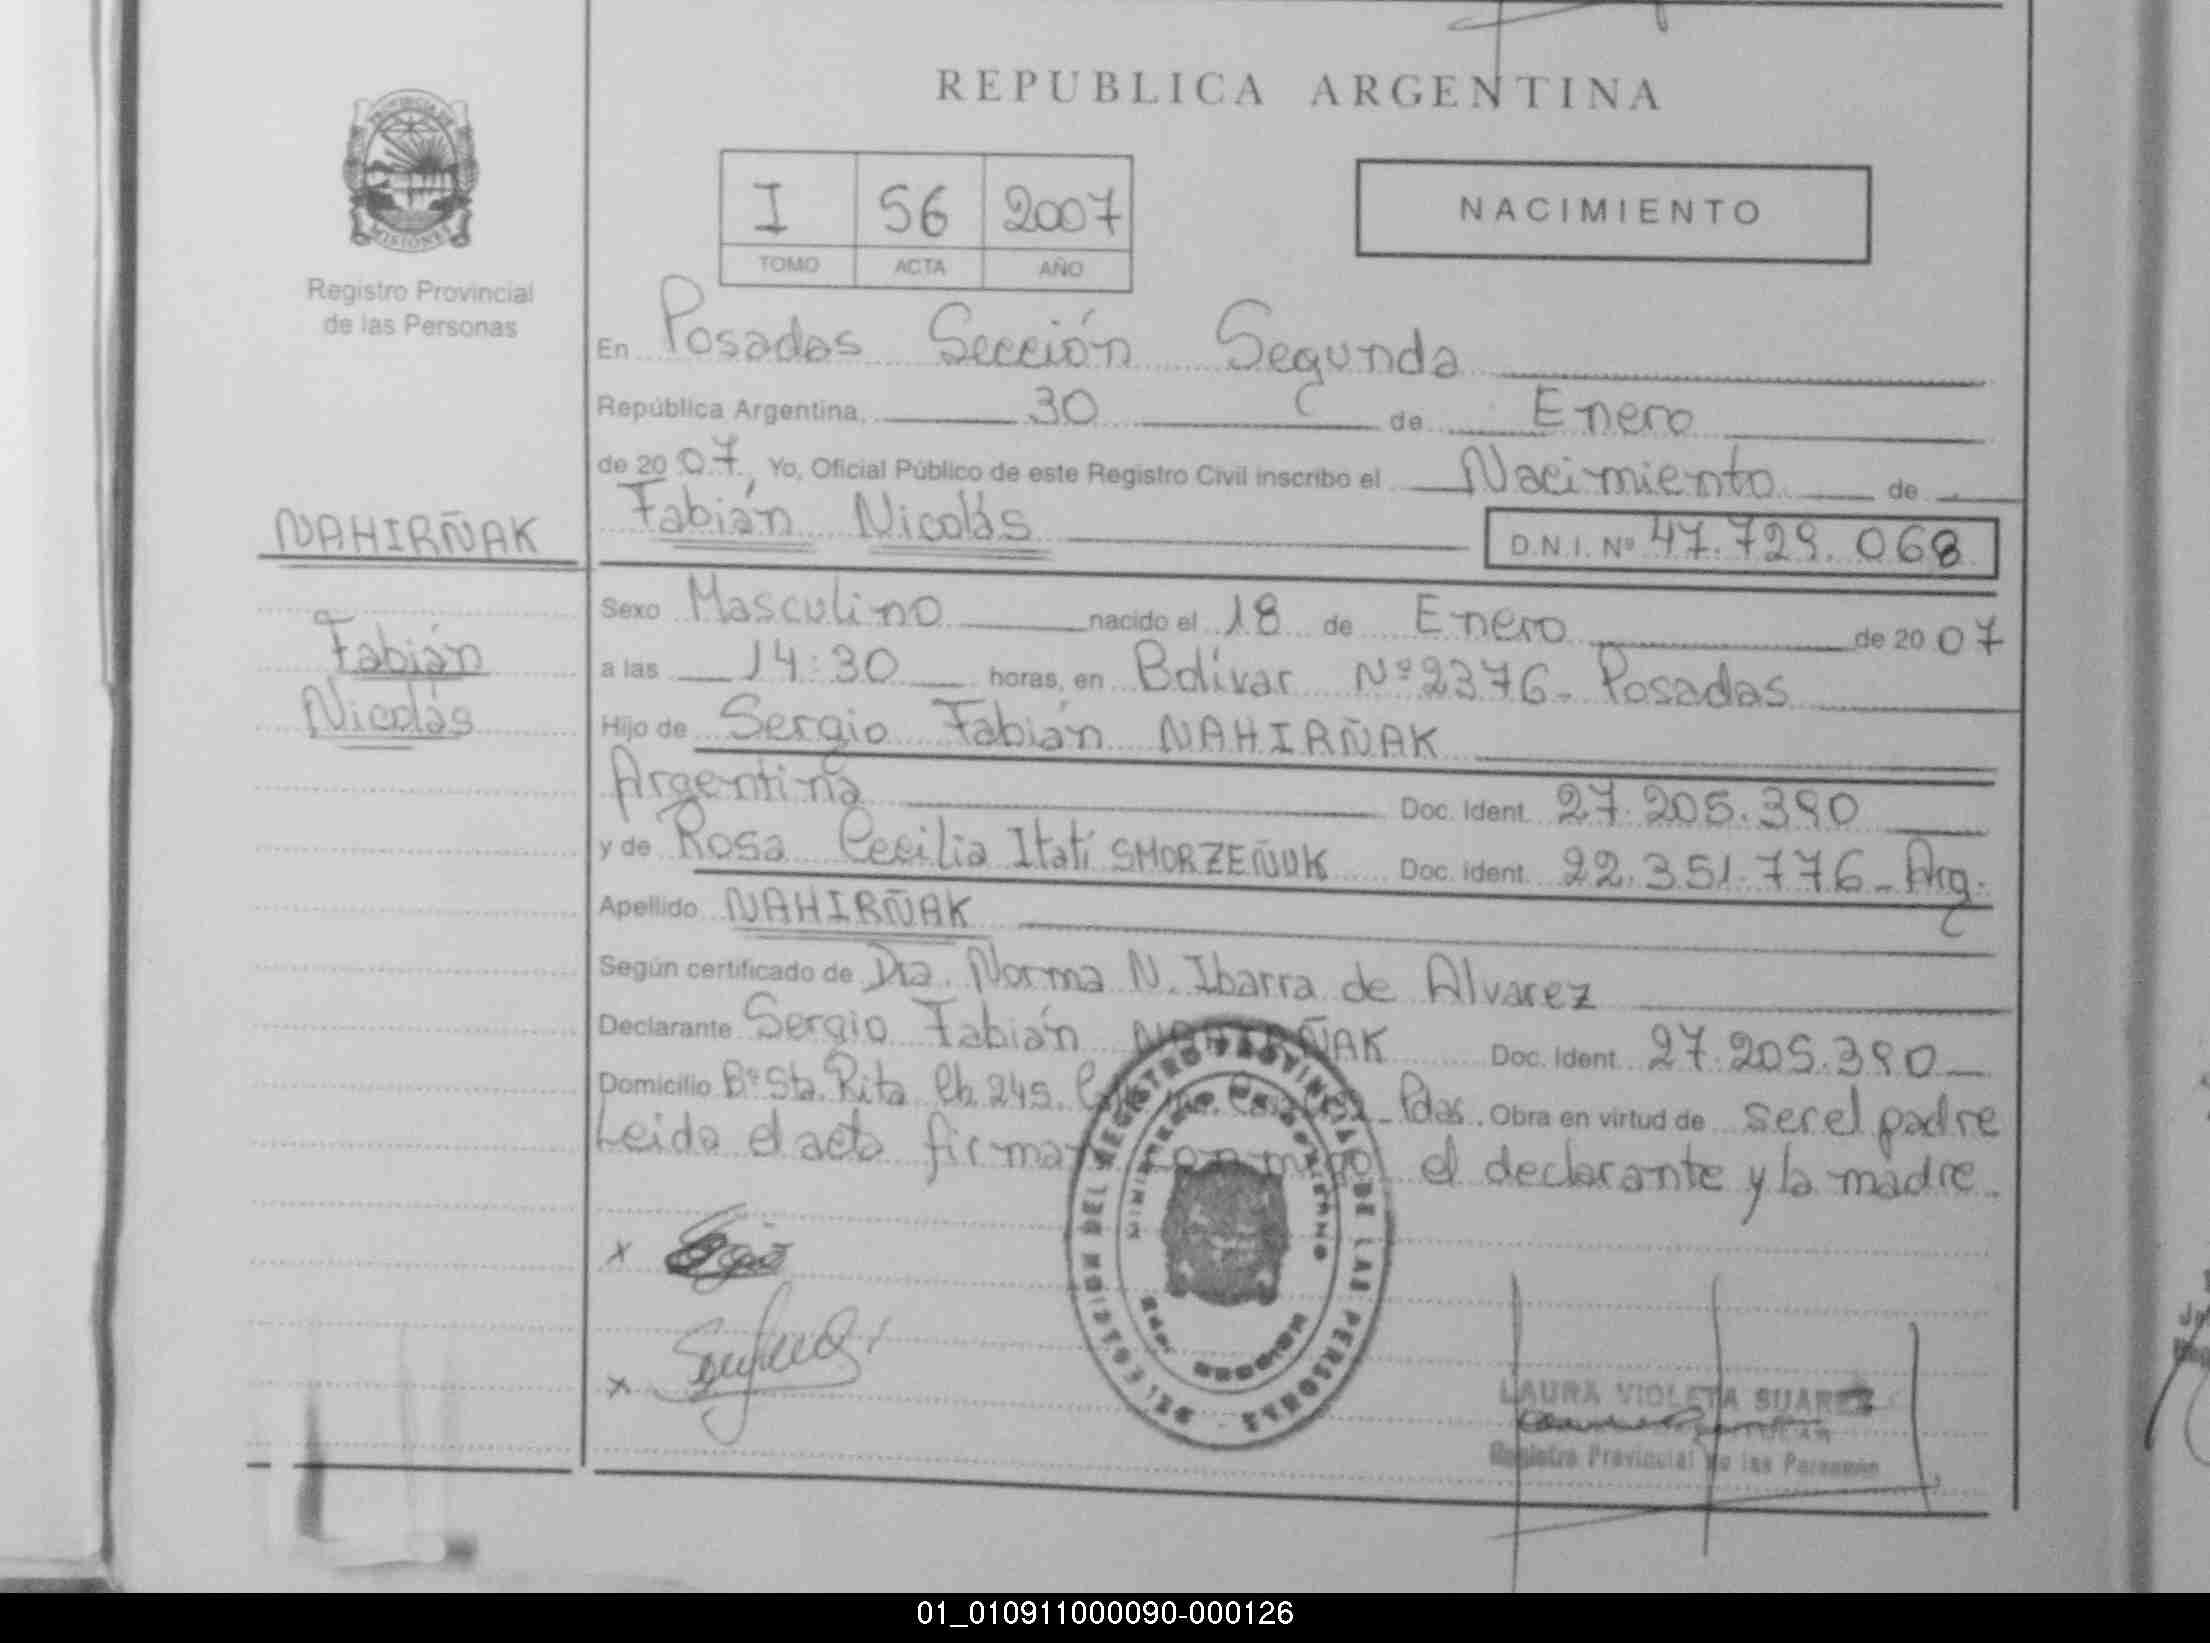 REPUBLICA ARGENTINA
PROVINCIA DE
MISIONES
Registro Provincial
de las Personas
I 56 2007
TOMO ACTA AÑO
NACIMIENTO
En Posadas Sección Segunda
República Argentina, 30 de Enero
de 20 07, Yo, Oficial Público de este Registro Civil inscribo el Nacimiento de
Fabián Nicolás D.N.I. Nº 47.729.068
NAHIRÑAK
Fabián
Nicolás
Sexo Masculino nacido el 18 de Enero de 20 07
a las 14:30 horas, en Bolívar Nº 2376 - Posadas
Hijo de Sergio Fabián NAHIRÑAK
Argentina Doc. Ident. 27.205.390
y de Rosa Cecilia Itatí SMORZEÑUK Doc. Ident. 22.351.776 - Arg.
Apellido NAHIRÑAK
Según certificado de Dra. Norma N. Ibarra de Alvarez
Declarante Sergio Fabián NAHIRÑAK Doc. Ident. 27.205.390
Domicilio Bº Sta. Rita Ch. 245. - Pdas. Obra en virtud de ser el padre
Leida el acta firman conmigo el declarante y la madre.
x
x
DEL REGISTRO PROVINCIAL DE LAS PERSONAS
MINISTERIO DE GOBIERNO
MISIONES
LAURA VIOLETA SUAREZ
Registro Provincial de las Personas
01_010911000090-000126